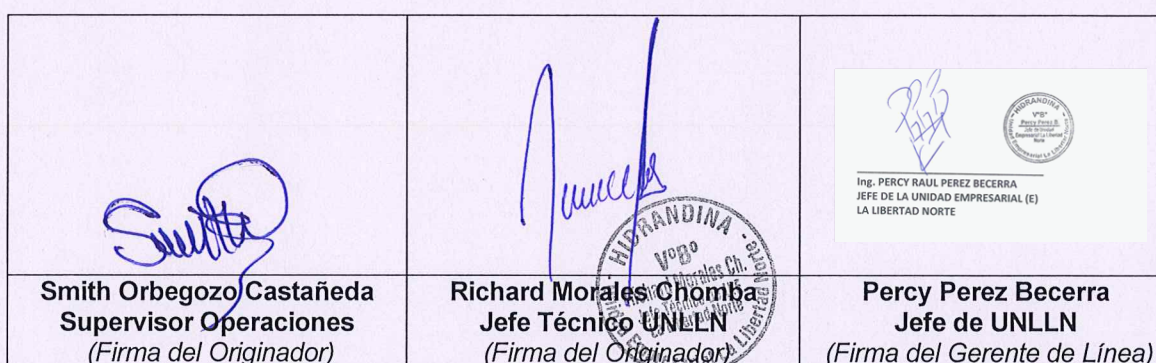 Smith
HIDRANDINA
VºBº
Richard Morales Ch.
Jefe Técnico
La Libertad Norte
HIDRANDINA
VºBº
Percy Perez B.
Jefe de Unidad
Empresarial La Libertad
Norte
Unidad Empresarial La Libertad Norte
Ing. PERCY RAUL PEREZ BECERRA
JEFE DE LA UNIDAD EMPRESARIAL (E)
LA LIBERTAD NORTE
Smith Orbegozo Castañeda
Supervisor Operaciones
(Firma del Originador)
Richard Morales Chomba
Jefe Técnico UNLLN
(Firma del Originador)
Percy Perez Becerra
Jefe de UNLLN
(Firma del Gerente de Línea)